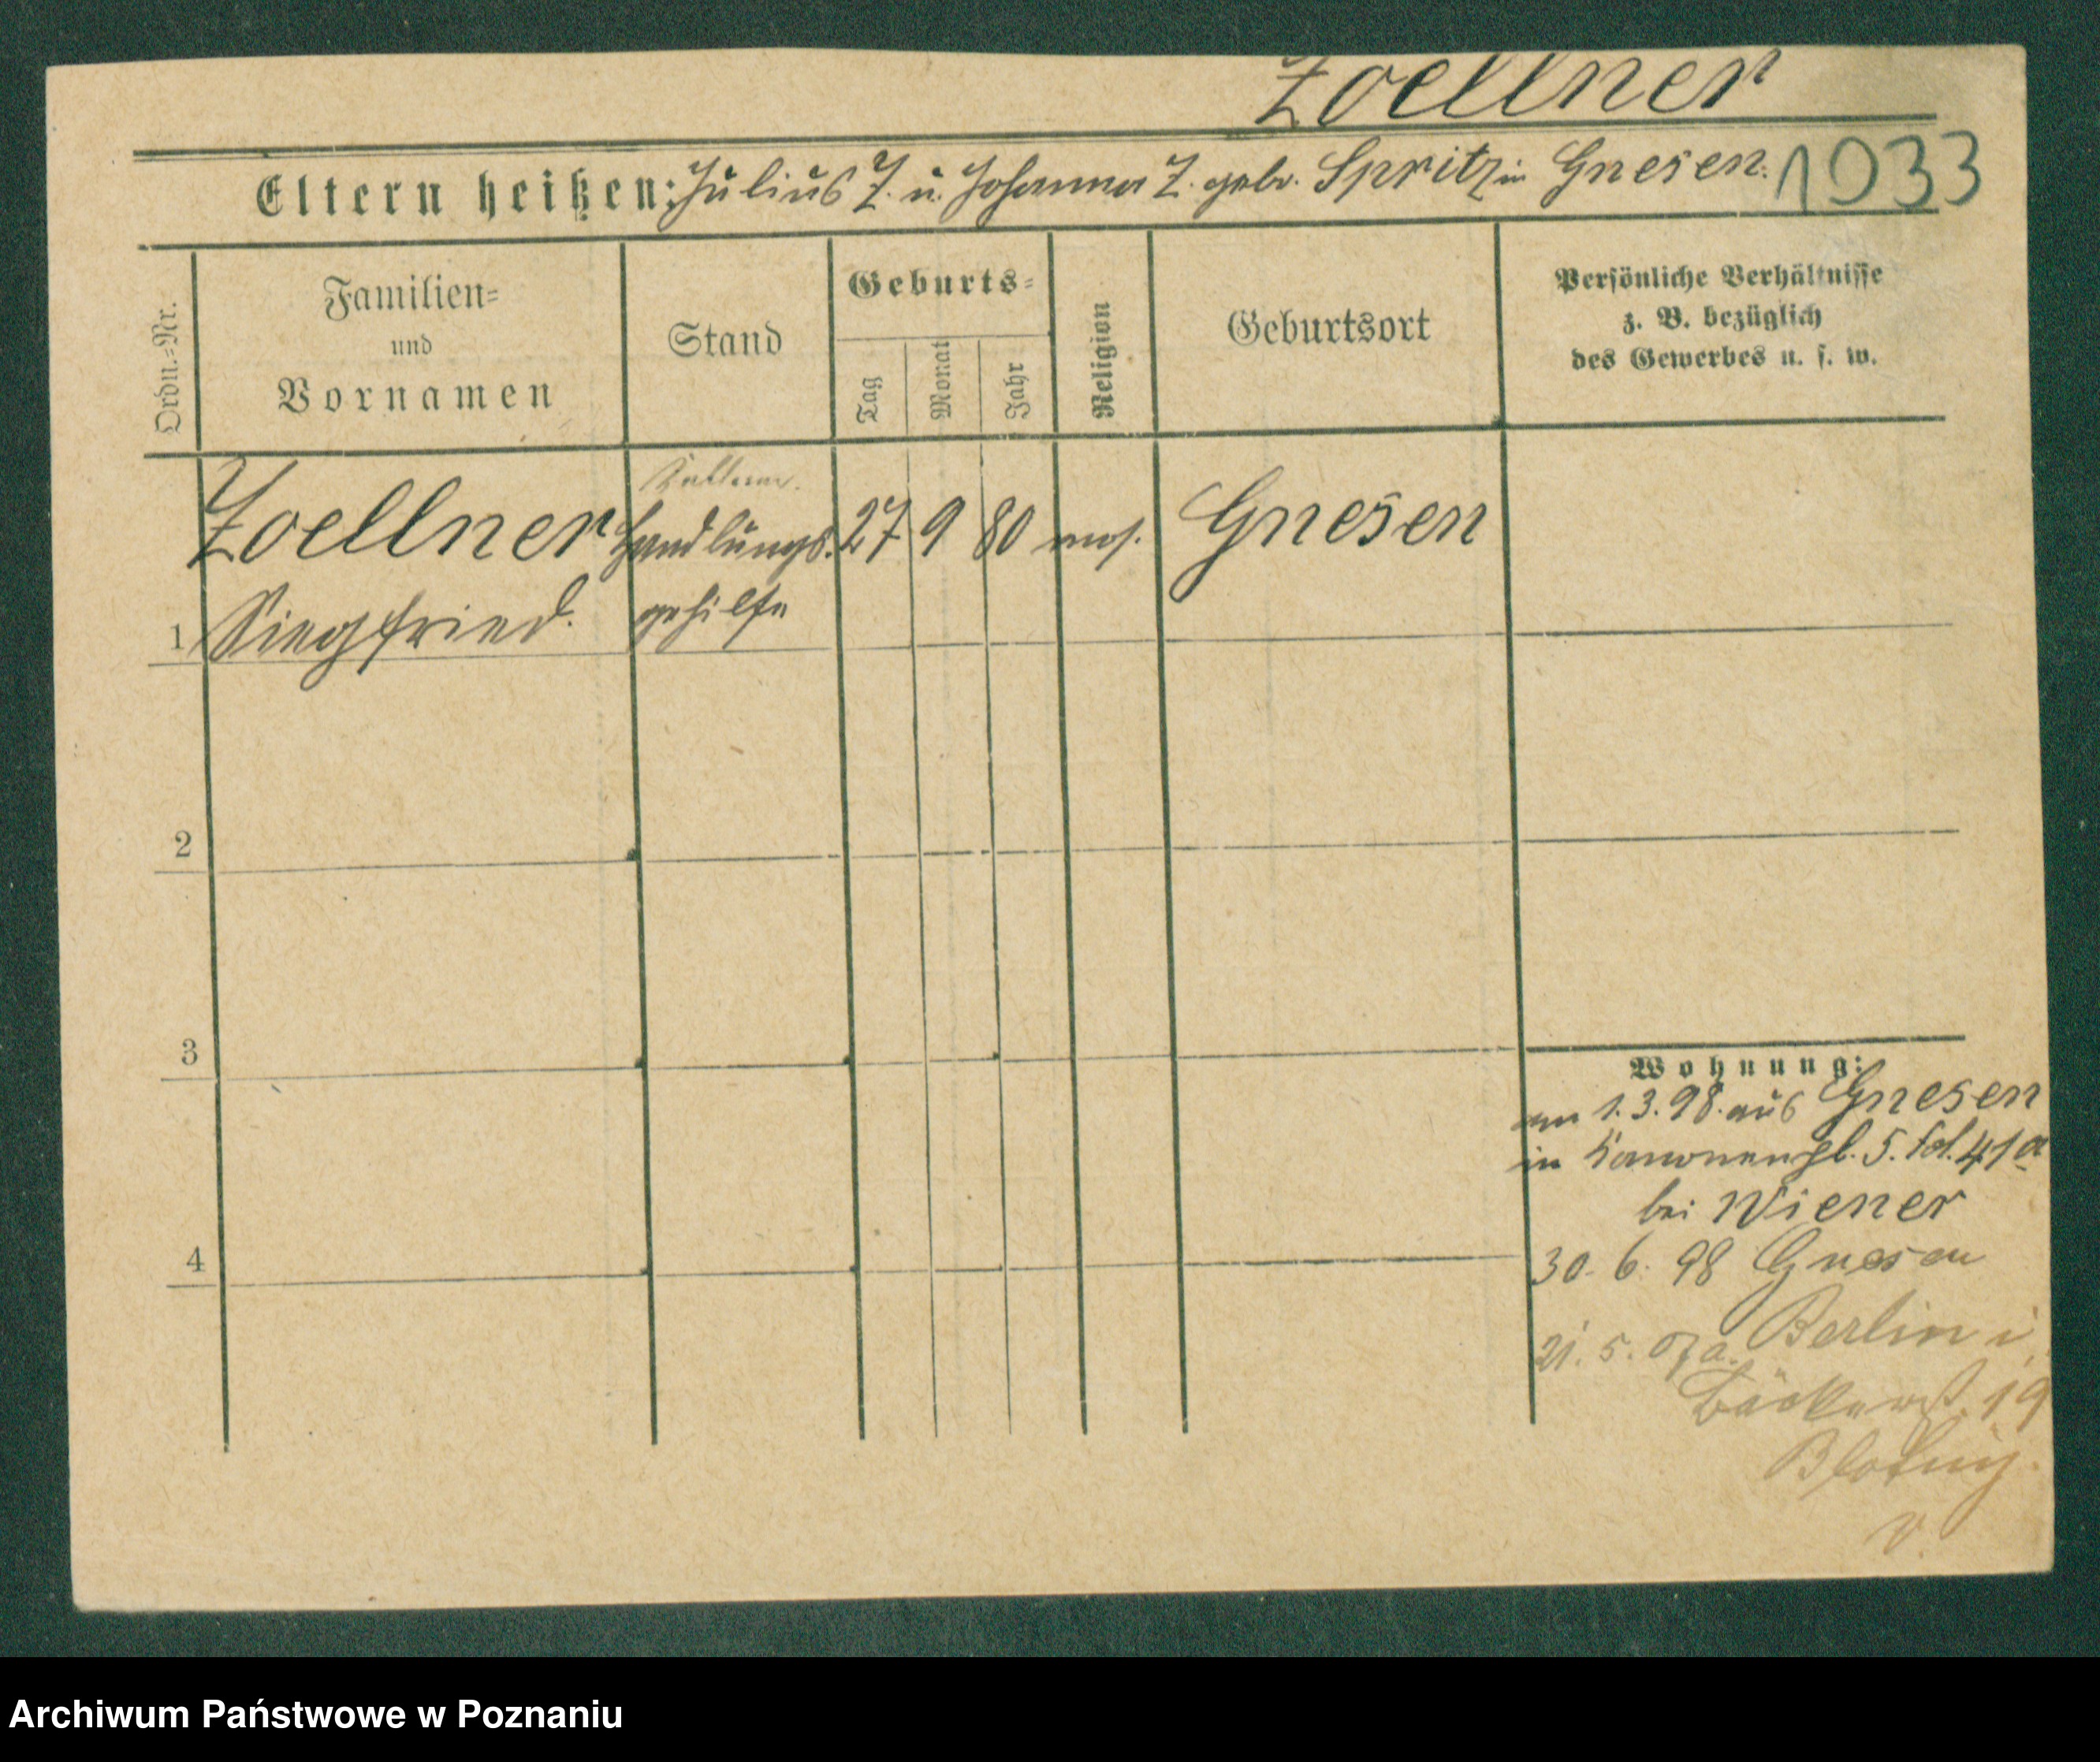 Zoellner
Eltern heißen: Julius Z. u. Johanna Z. geb. Spritz in Gnesen. 1033
Ordn.=Nr.
Familien=
und
Vornamen
Stand
Geburts=
Tag
Monat
Jahr
Religion
Geburtsort
Persönliche Verhältnisse
z. B. bezüglich
des Gewerbes u. s. w.
Zoellner Handlungs. 27 9 80 mos. Gnesen
1 Siegfried. gehilfe
2
3
Wohnung:
am 1.3.98. aus Gnesen
in Kanonenpl. 5. fol. 41a
bei Wiener
4
30. 6. 98 Gnesen
21. 5. 07 a. Berlin i.
Bäckerst. 19
v.
Archiwum Państwowe w Poznaniu